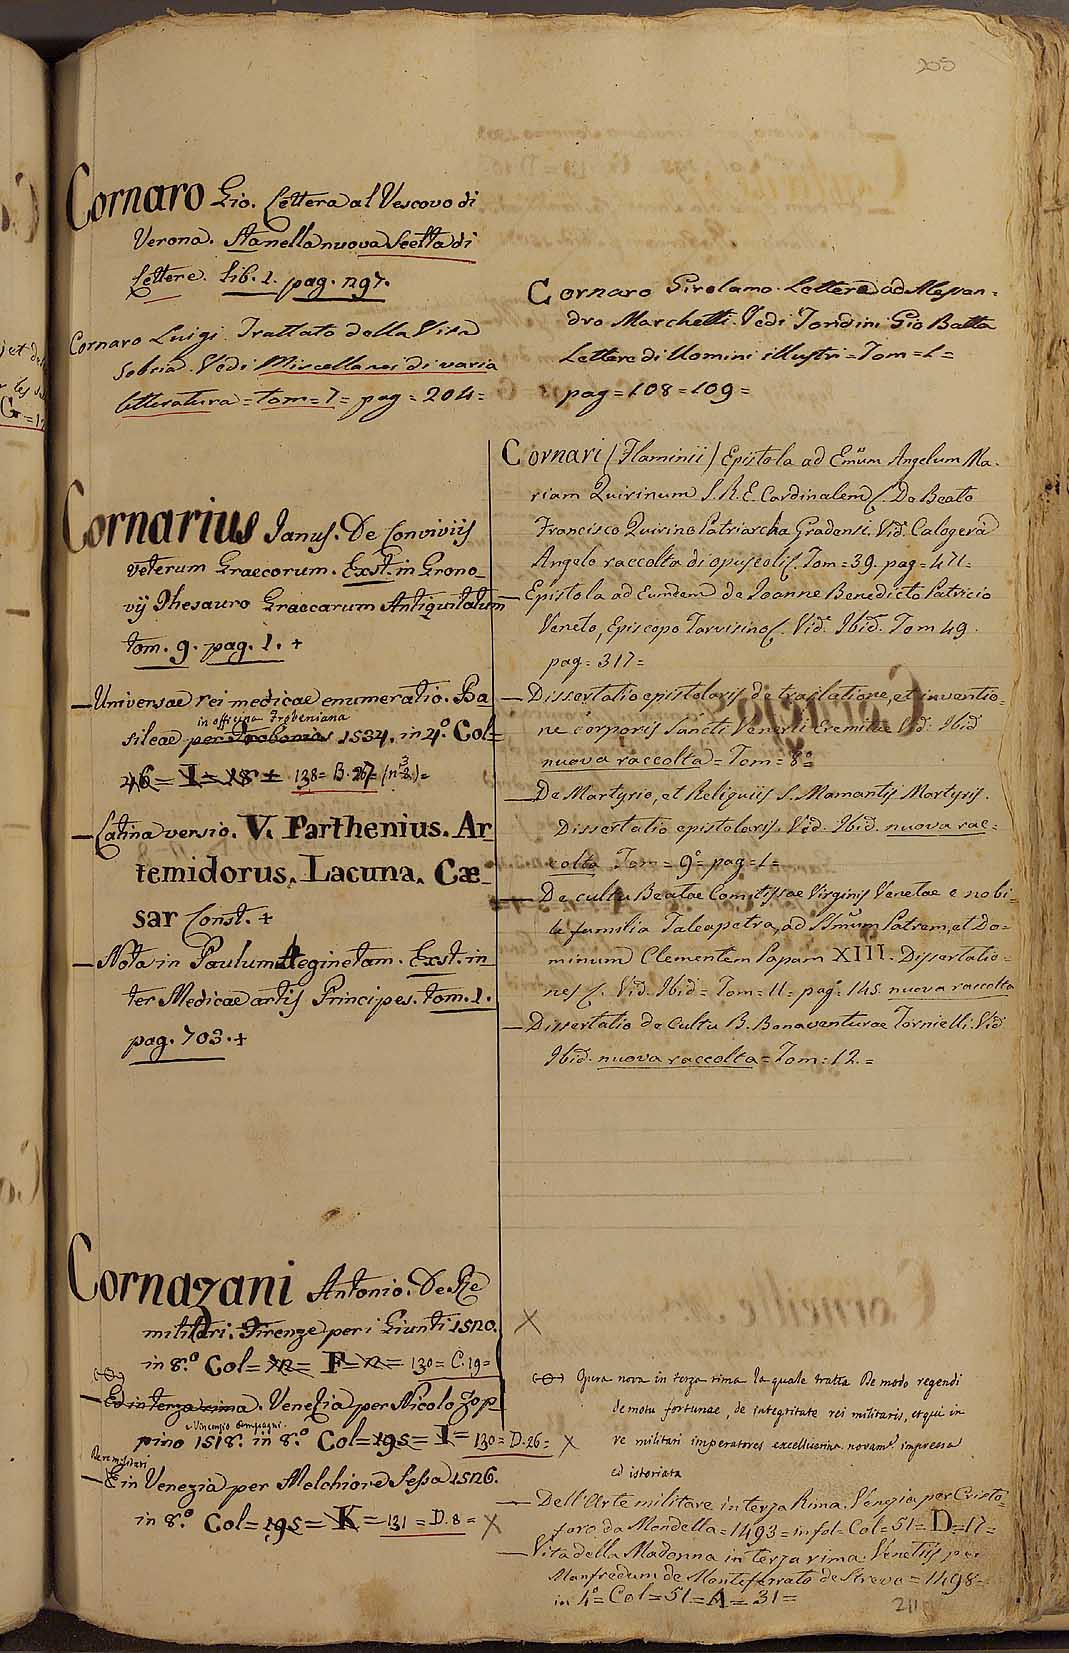 205
Cornaro Gio. Lettera al Vescovo di
Verona. Sta nella nuova Scelta di
Lettere. Lib. 1. pag. 297.
Cornaro Luigi. Trattato della Vita
sobria. Vedi Miscellanei di varia
letteratura = tom = 7 = pag = 204 =
Cornarius Janus. De Conviviis
veterum Graecorum. Exst. in Grono_
vij Thesauro Graecarum Antiquitatum
tom. 9. pag. 1. +
— Universae rei medicae enumeratio. Ba
in officina Frobeniana
sileae per Frobenios 1534. in 4.º Col=
46 = I = 18 + 138 = B. 26 = (nº 3 2.) =
— Latina versio. V. Parthenius. Ar_
temidorus. Lacuna. Cæ_
sar Const. +
— Nota in Paulum Aeginetam. Exst. in_
ter Medicae artis Principes. tom. 1.
pag. 703. +
Cornazani Antonio. De Re
militari. Firenze per i Giunti 1520.
in 8.º Col = = F = 12 = 130 = C. 19 =
— Ed in terza rima. Venezia per Nicolo Zop
e Vincenzo Compagni.
pino 1518. in 8.º Col = 195 = I = 130 = D. 26 = X
De re militari
— E in Venezia per Melchiore Sessa 1526.
in 8.º Col = 195 = K = 131 = D. 8 = X
Cornaro Girolamo. Lettera ad Alessan=
dro Marchetti. Vedi Tondini Gio Batta
Lettere di Uomini illustri = Tom = 1 =
pag = 108 = 109 =
Cornari (Flaminii) Epistola ad Emum Angelum Ma=
riam Quirinum S. R. E. Cardinalem &. De Beato
Francisco Quirino Patriarcha Gradensi. Vid. Calogerà
Angelo raccolta di opuscoli &. Tom = 39. pag = 471 =
— Epistola ad Eumdem de Joanne Benedicto Patricio
Veneto, Episcopo Tarvisino &. Vid. Ibid. Tom 49.
pag = 317 =
— Dissertatio epistolaris de traslatione, et inventio=
ne corporis Sancti Venerii Eremitae Vid. Ibid
nuova raccolta = Tom = 8º
— De Martyrio, et Reliquiis S. Mamantis Martyris.
Dissertatio epistolaris. Vid. Ibid. nuova rac=
colta Tom = 9º = pag = 1 =
— De cultu Beatae Comitissae Virginis Venetae e nobi=
le familia Taleapetra, ad Ssmum Patrem, et Do=
minum Clementem Papam XIII. Dissertatio=
nes &. Vid. Ibid = Tom = 11 = pag = 145. nuova raccolta
— Dissertatio de Cultu B. Bonaventurae Tornielli. Vid.
Ibid. nuova raccolta = Tom = 12. =
X
Opera nova in terza rima la quale tratta De modo regendi
de motu fortunae, de integritate rei militaris, et qui in
re militari imperatores excelluerint novamte. impressa
ed istoriata
— Dell'Arte militare in terza Rima. Venezia per Cristo=
foro da Mondella = 1493 = in fol = Col = 51 = D = 17 =
— Vita della Madonna in terza rima. Venetiis per
Manfredum de Monteferrato de Strevo = 1498 =
in 4º = Col = 51 = A = 31 =
211